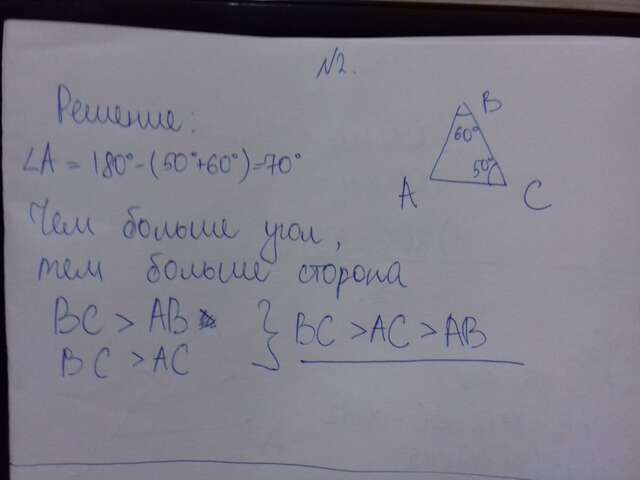 N2.
Решение:
∠A = 180° - (50° + 60°) = 70°
B
60°
50°
A
C
Чем больше угол,
тем больше сторона
BC > AB
BC > AC
} BC > AC > AB